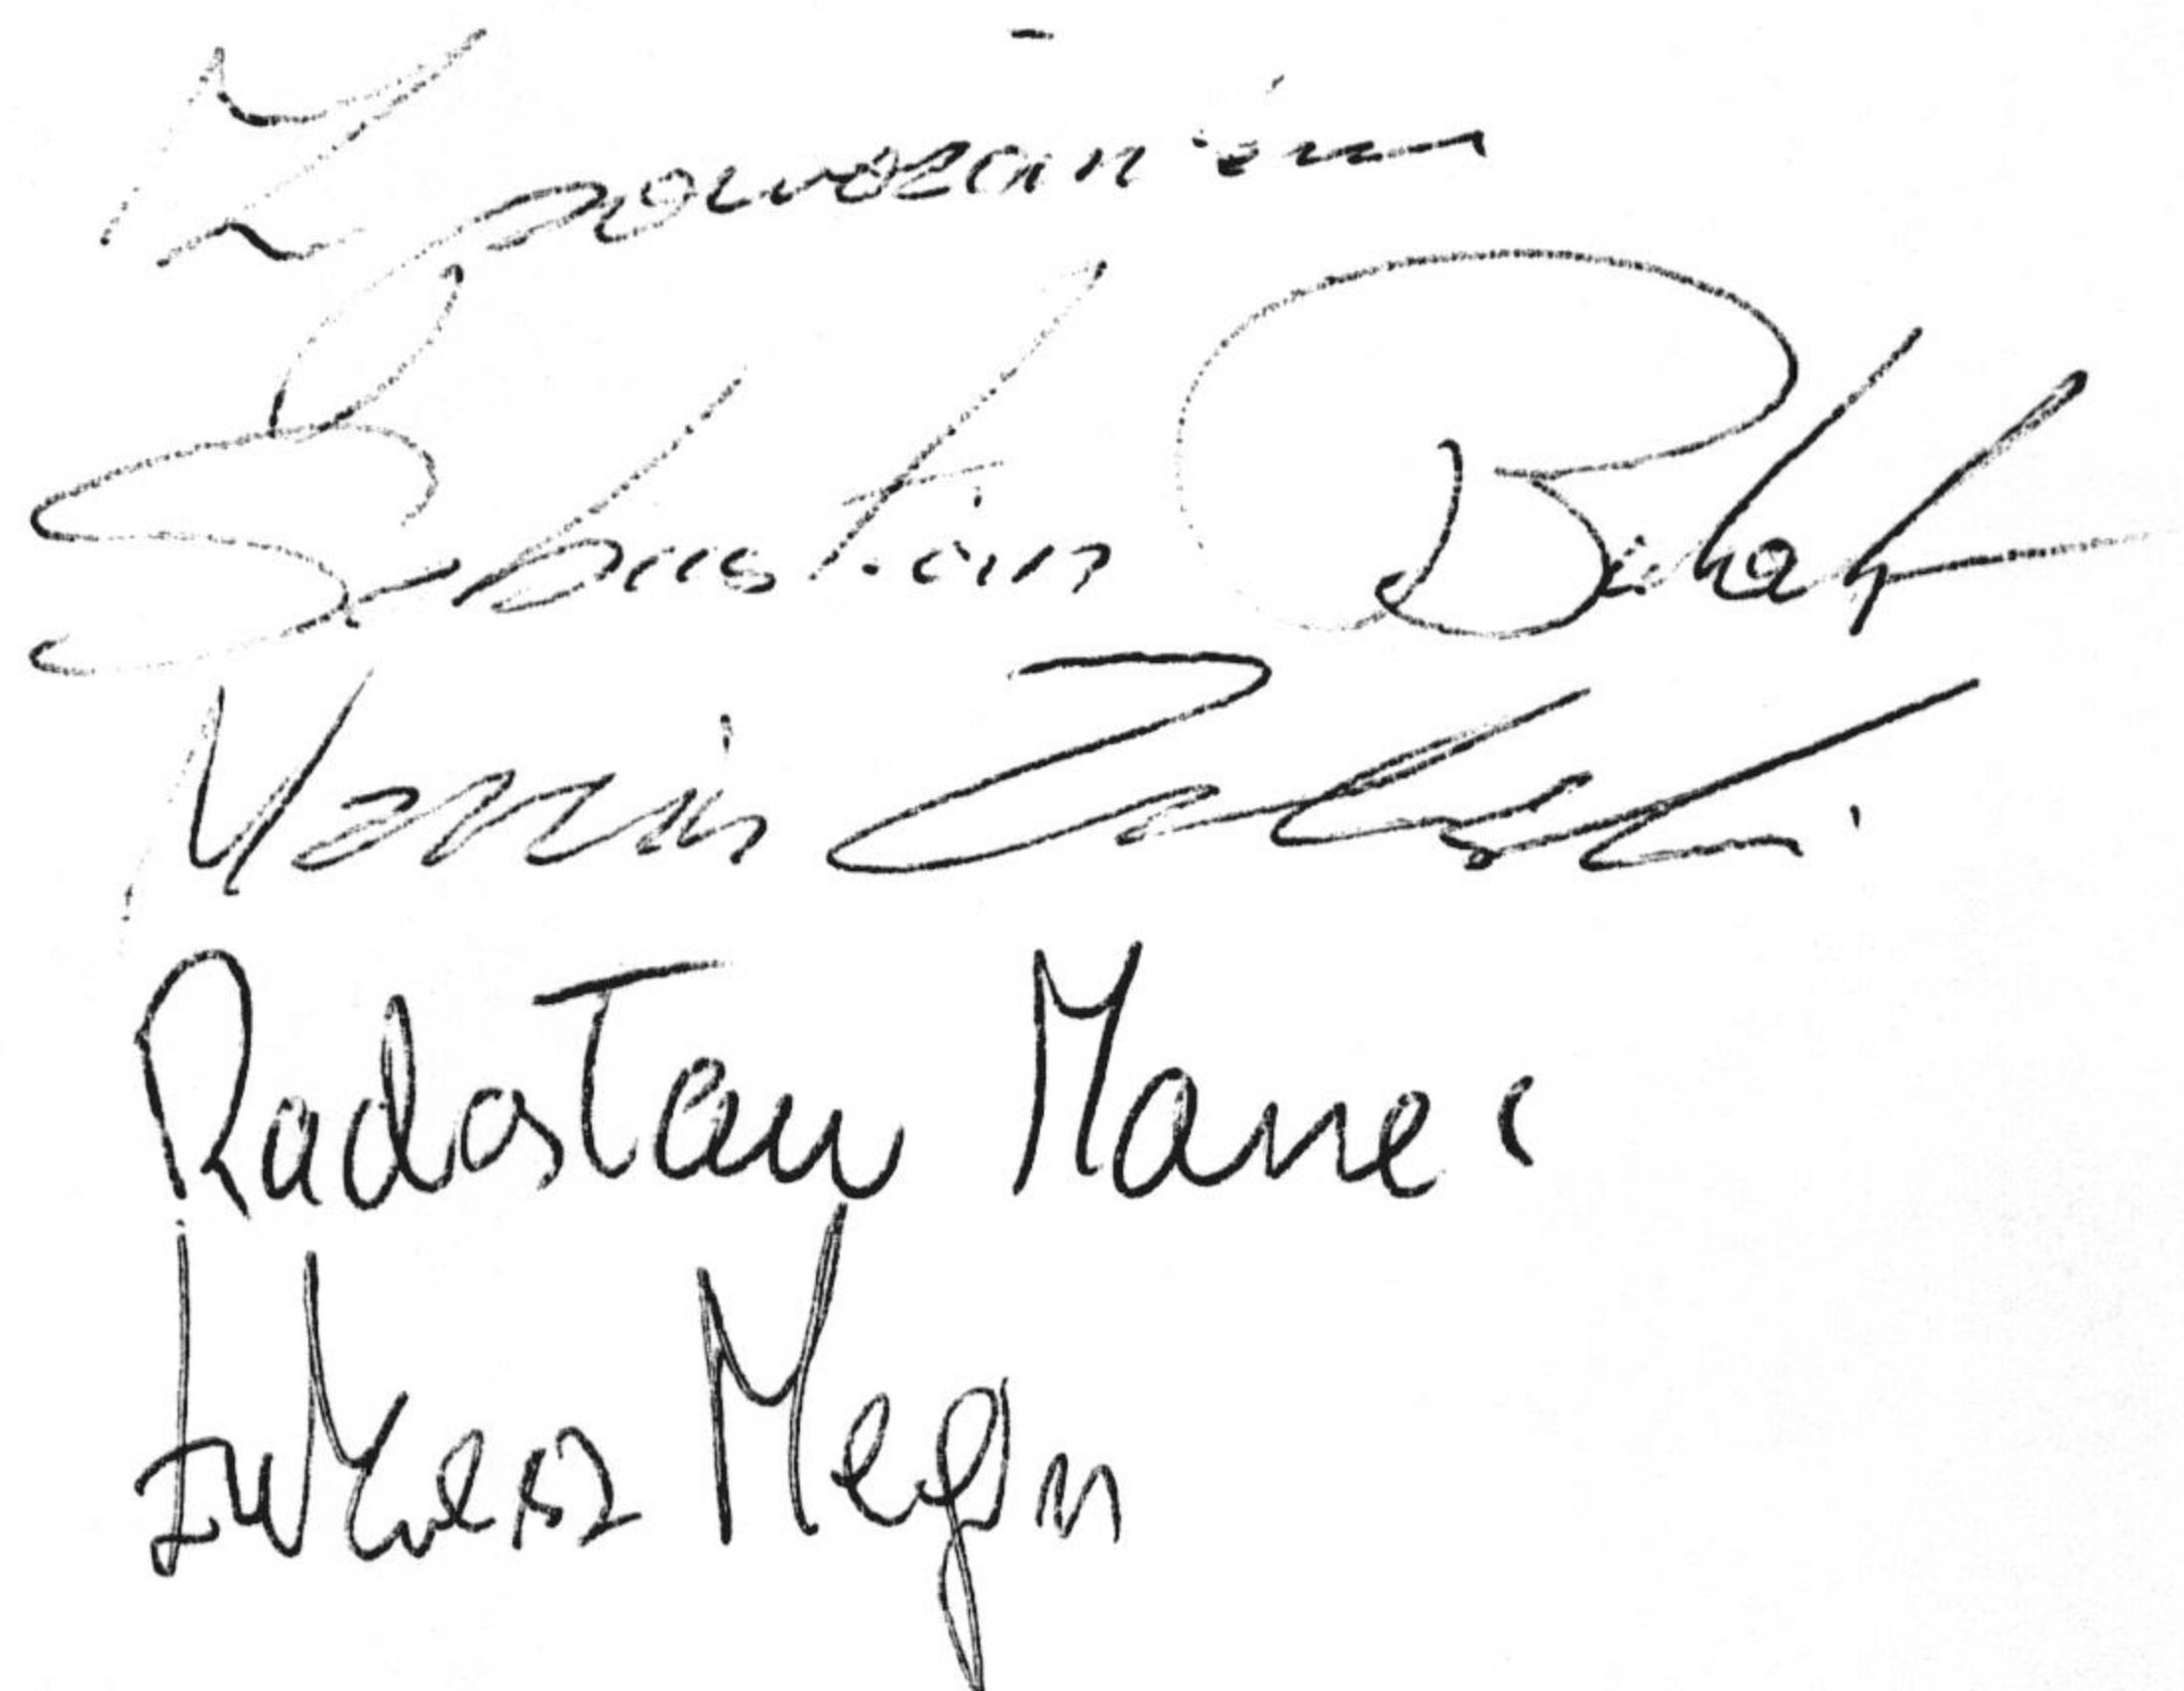 Z poważaniem
Sebastian
Marcin Zaleski
Radosław Maner
Łukasz Megin